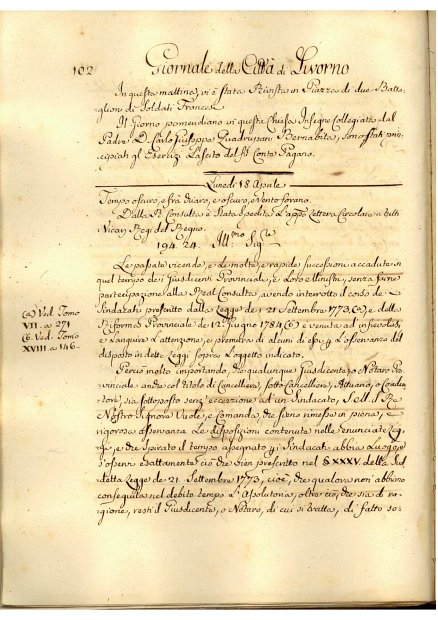 102 Giornale della Città di Livorno
In questa mattina, vi è stata Rivista in Piazza di due Batta-
glioni di Soldati Francesi
Il Giorno pomeridiano in questa Chiesa Insigne Collegiata dal
Padre D. Carlo Giuseppe Quadrupani Bernabita, sono stati prin-
cipiati gl'Esercizi Lascito del Sig. Conte Pagano.
Lunedì 18 Aprile
Tempo oscuro, e frà chiaro, e oscuro, e vento forano.
Dalla R. Consulta è stata spedita l'app. Lettera Circolare a tutti
Vicari Regi del Regno.
194. 24. Ill.mo Sig.re
Le passate vicende, e le molte, e rapide successioni accadute in
quel tempo dei Giusdicenti Provinciali, e Loro Ministri, senza farne
partecipazione alla Real Consulta, avendo interrotto il corso de
Sindacati prescritto dalla Legge de' 21 Settembre 1773 (a), e della
Riforma Provinciale de 12. Giugno 1784 (b) è venuta ad infievolirsi
e Languire l'attenzione, e premura di alcuni di essi L'osservanza del
disposto in dette Leggi sopra l'oggetto indicato.
(a) Ved. Tomo
VII. a 271
(b) Ved. Tomo
XVIII a 146.
Perciò molto importando, che qualunque Giusdicente, o Notaro Pro-
vinciale anche col Titolo di Cancelliere, sotto Cancelliere, Attuario, o Coadiu-
tore, sia sottoposto senz'eccezione ad un Sindacato, Sell. il Re
Nostro Signore Vuole, e Comanda, che sieno rimesse in piena, e
rigorosa osservanza Le disposizioni contenute nelle enunciate Leg-
gi, e che spirato il tempo assegnato ai Sindacati abbia Luogo, e
s'operi esattamente ciò che vien prescritto nel § XXXV. della sud-
detta Legge de 21. Settembre 1773, cioè, che qualora non abbiano
conseguita nel debito tempo l'Assolutoria, oltre ciò, che sia di ra-
gione, resti il Giusdicente, o Notaro, di cui si tratta, di fatto so-